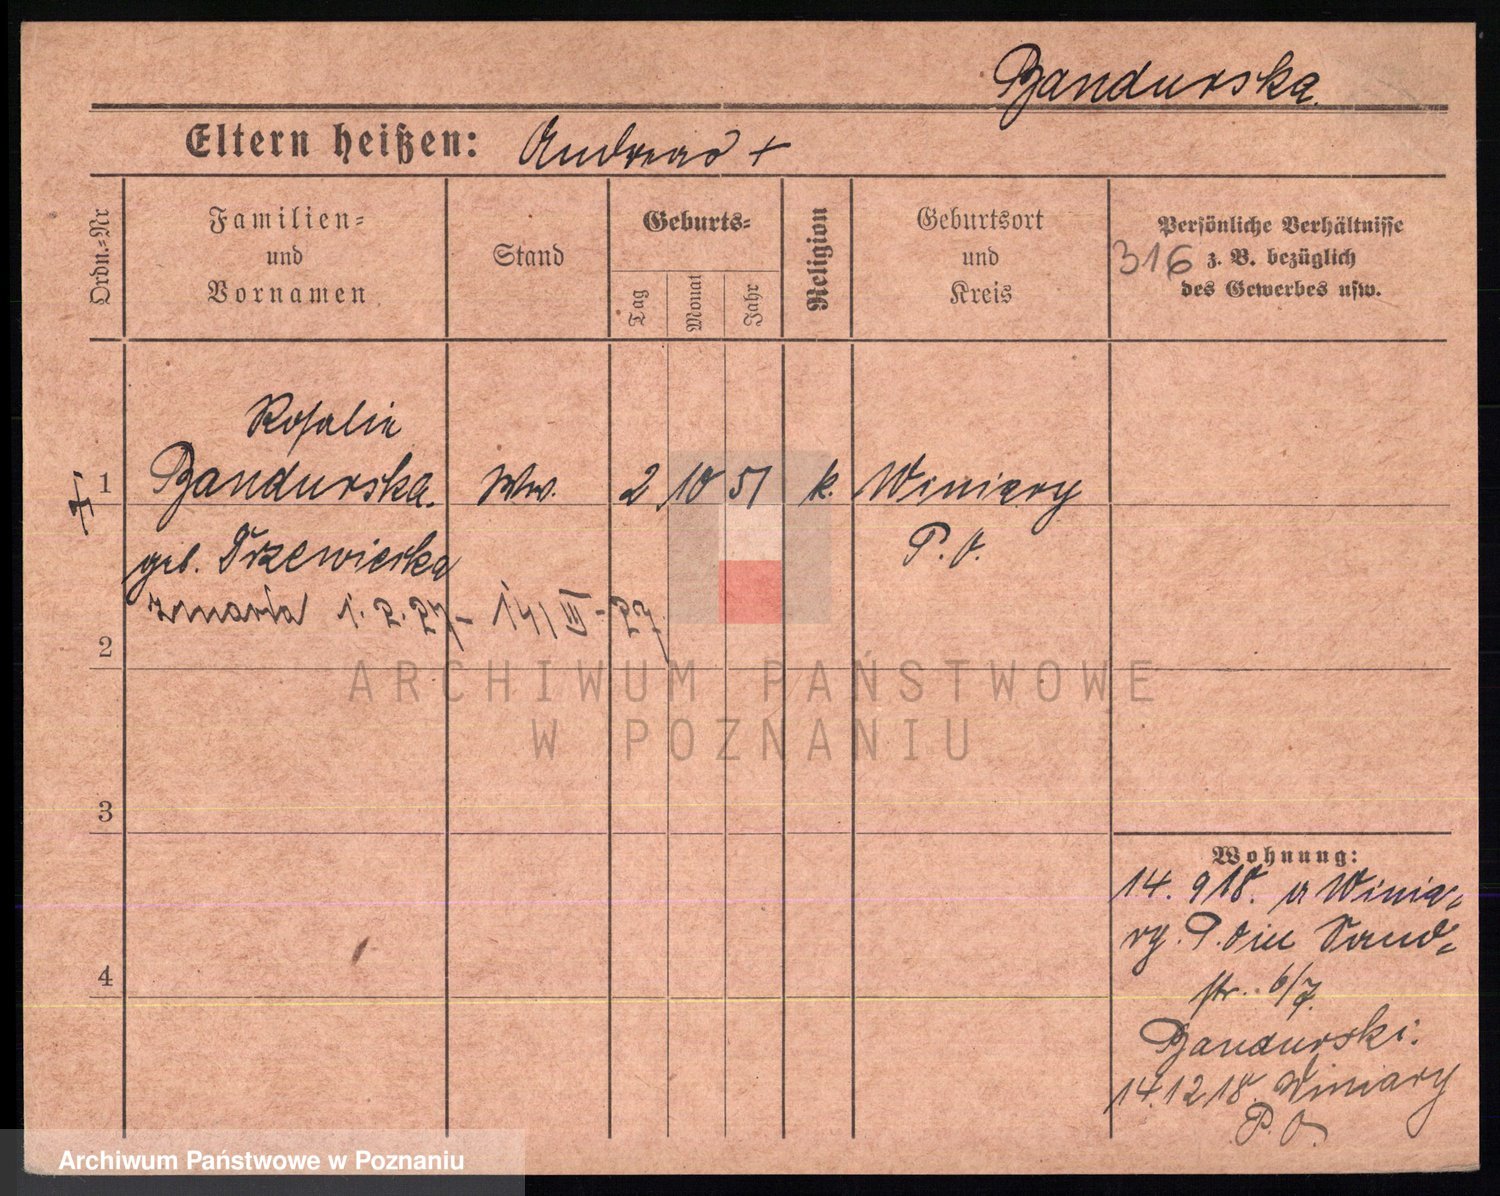 Bandurska
Eltern heißen: Andreas +
Ordn.=Nr
Familien=
und
Vornamen
Stand
Geburts=
Tag
Monat
Jahr
Religion
Geburtsort
und
Kreis
Persönliche Verhältnisse
316 z. B. bezüglich
des Gewerbes usw.
Rosalie
1 Bandurska. Ww. 2 10 51 k. Winiary
geb. Drzewiecka P. O.
zmarła 1. 2. 27 - 14/III - 27
2
3
4
Wohnung:
14. 9 18. a Winia=
ry. P. O in Sand=
str. 6/7
Bandurski.
14.12 18. Winiary
P. O.
ARCHIWUM PAŃSTWOWE
W POZNANIU
Archiwum Państwowe w Poznaniu